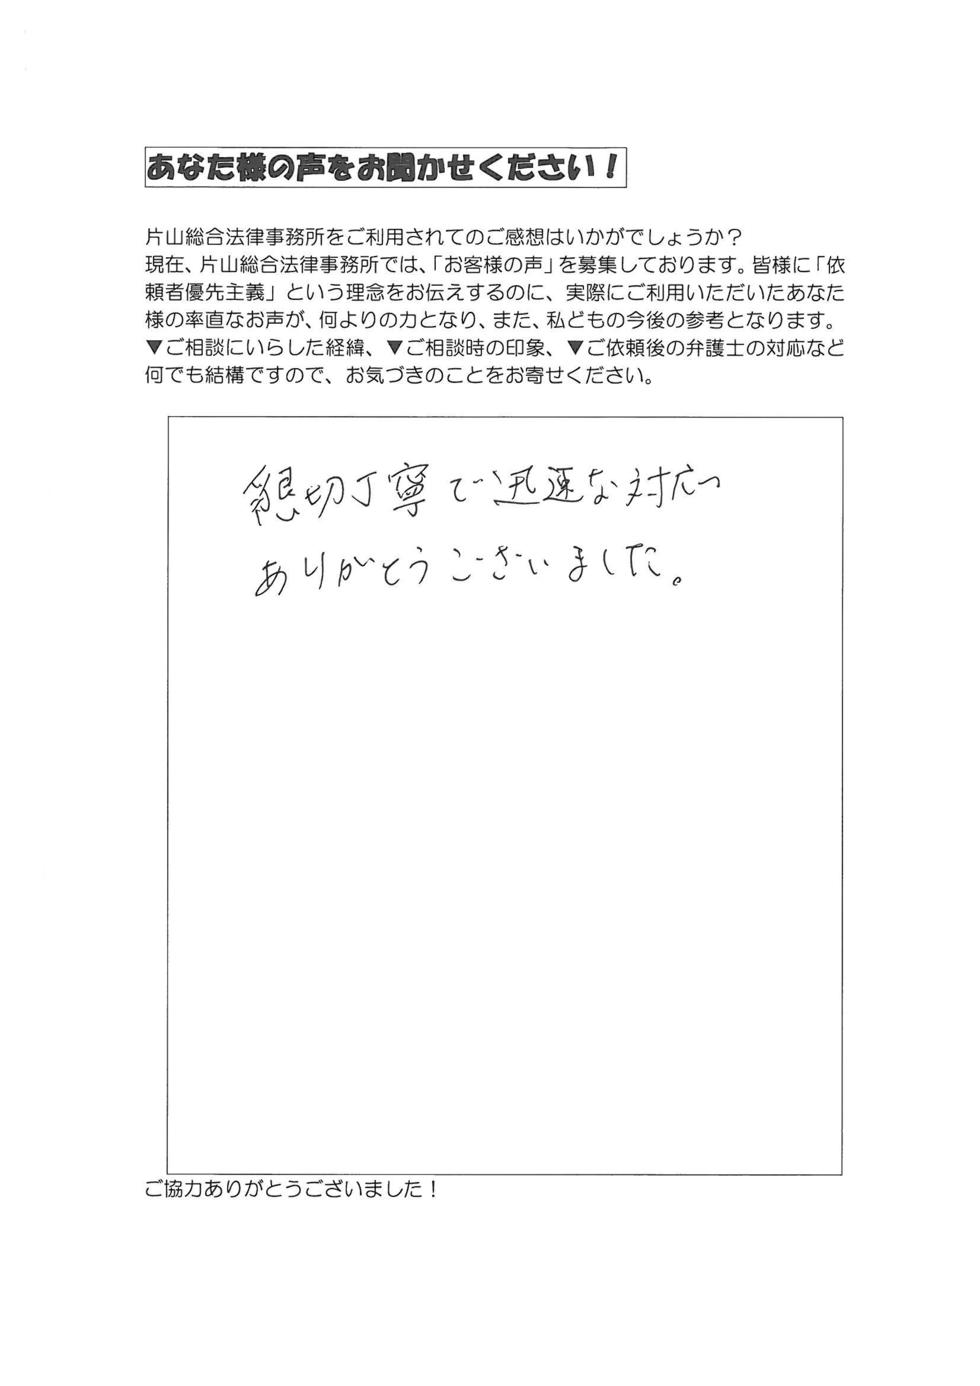 あなた様の声をお聞かせください！
片山総合法律事務所をご利用されてのご感想はいかがでしょうか？
現在、片山総合法律事務所では、「お客様の声」を募集しております。皆様に「依
頼者優先主義」という理念をお伝えするのに、実際にご利用いただいたあなた
様の率直なお声が、何よりの力となり、また、私どもの今後の参考となります。
▼ご相談にいらした経緯、▼ご相談時の印象、▼ご依頼後の弁護士の対応など
何でも結構ですので、お気づきのことをお寄せください。
懇切丁寧で迅速な対応
ありがとうございました。
ご協力ありがとうございました！